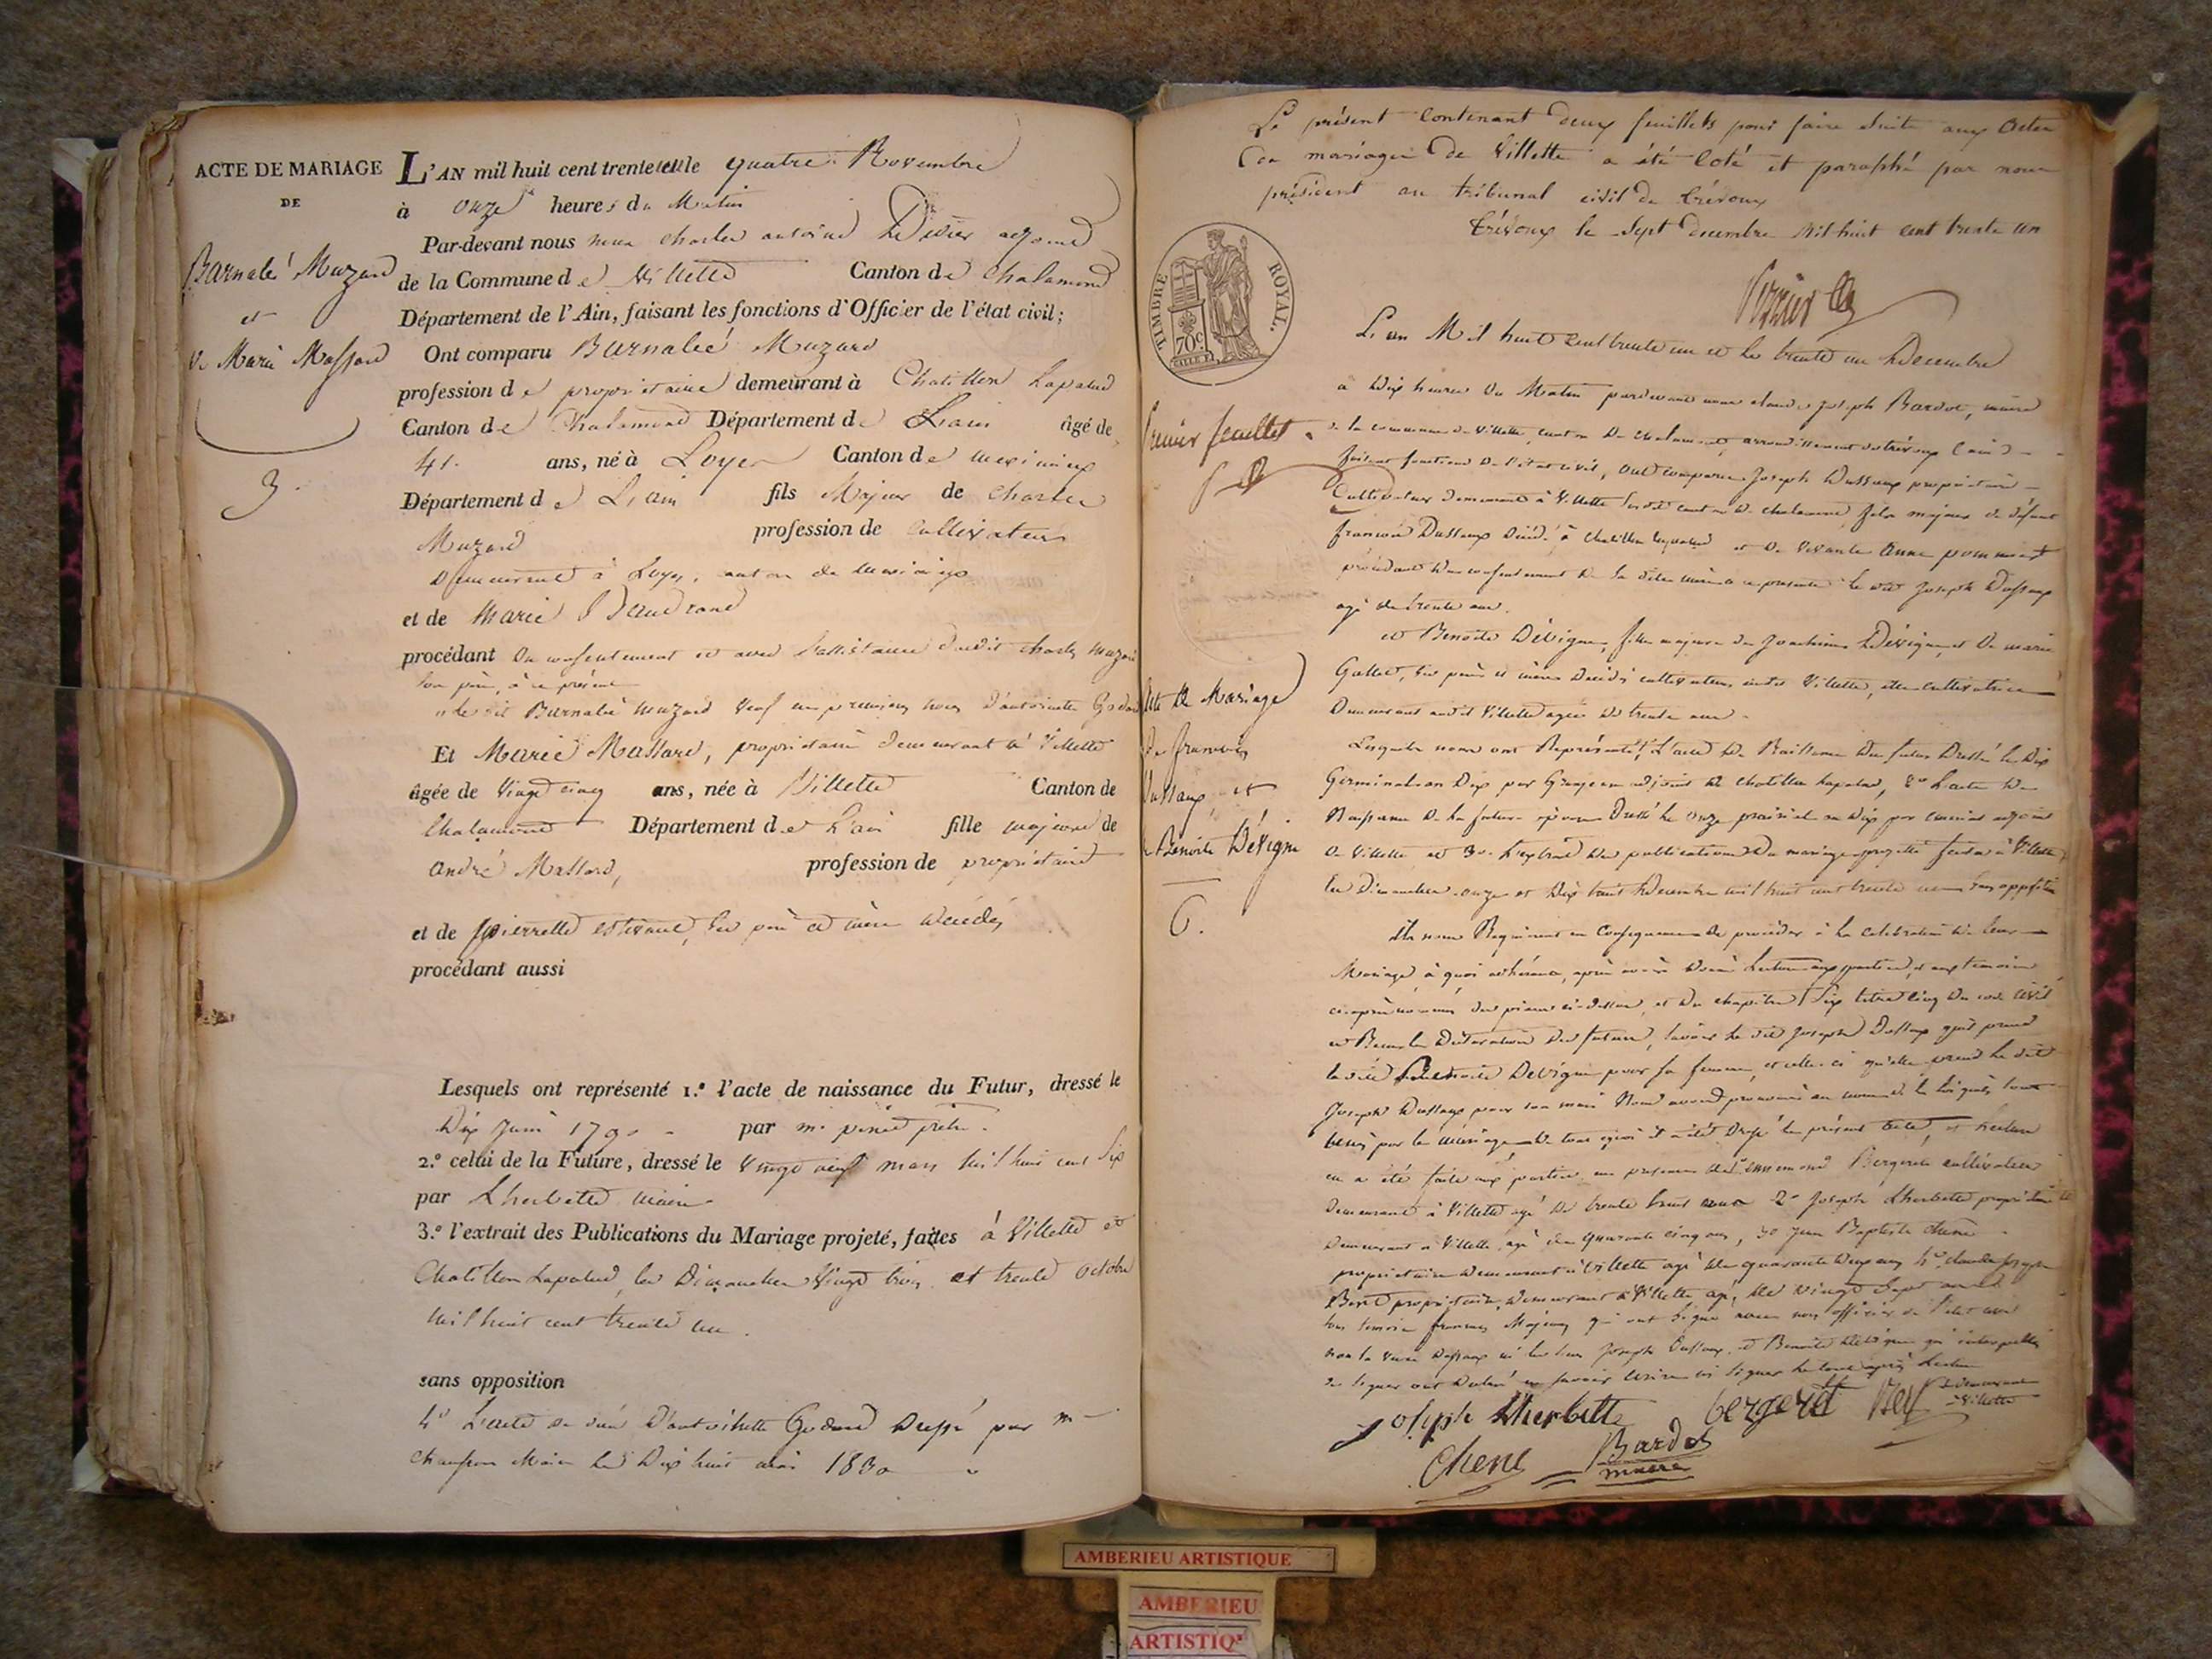 ACTE DE MARIAGE
DE
Barnabé Muzard
et
De Marie Massard
3.
L'AN mil huit cent trente et un le quatre Novembre
à onze heures du Matin
Par-devant nous nous charles antoine Didier adjoint
de la Commune de Villette Canton de Chalamond
Département de l'Ain, faisant les fonctions d'Officier de l'état civil;
Ont comparu Barnabé Muzard
profession de propriétaire demeurant à Chatillon Lapalud
Canton de Chalamond Département de L'ain âgé de
41. ans, né à Loyes Canton de meximieux
Département de L'ain fils Majeur de Charles
Muzard profession de Cultivateur
Demeurant à Loyes, canton de meximieux
et de Marie
procédant du consentement et avec l'assistance dudit charles muzard
son père, à ce présent
le dit Barnabé muzard veuf en premières noces D'antoinette Godard
Et Marie Massard, propriétaire demeurant à Villette
âgée de Vingt cinq ans, née à Villette Canton de
Chalamond Département de L'ain fille majeure de
André Massard, profession de propriétaire
et de pierrette estivant, ses père et mère décédés
procédant aussi
Lesquels ont représenté 1.º l'acte de naissance du Futur, dressé le
Dix Juin 1790 par mr. pinet prêtre.
2.º celui de la Future, dressé le Vingt neuf mars mil huit cent six
par Lherbette maire
3.º l'extrait des Publications du Mariage projeté, faites à Villette et
Chatillon Lapalud, les Dimanches Vingt trois et trente octobre
mil huit cent trente un.
sans opposition
4º L'acte de décès D'antoinette Godard Dressé par mr
Maire le Dix huit mai 1830
Le présent contenant deux feuillets pour faire suite aux actes
de mariages de Villette a été coté et paraphé par nous
président au tribunal civil de trévoux
trévoux le sept décembre mil huit cent trente un
TIMBRE ROYAL.
70c
Premier feuillet.
L'an Mil huit cent trente un et le trente un Décembre
à Dix heures du Matin pardevant nous claude joseph Bardot, maire
de la commune de Villette, canton de chalamond, arrondissement de trévoux (ain)
faisant fonctions de l'état civil, ont comparu Joseph Dussaup propriétaire
Cultivateur demeurant à Villette susdit canton de chalamond, fils majeur de défunt
françois Dussaup décédé à Chatillon lapalud et de vivante Anne pommet
procédant du consentement de sa dite mère ce présente le dit Joseph Dussaup
agé de trente ans.
et Benoîte Dévigne, fille majeure de Joachim Dévigne, et de marie
Gallet, ses père et mère décédés cultivateurs audit Villette, elle cultivatrice
Demeurant audit Villette agée de trente ans.
Acte de Mariage
De françois
Dussaup, et
de Benoite Dévigne
6.
Lesquels nous ont Représenté 1º L'acte de Naissance du futur Dressé le Dix
Germinal an Dix par Grangeon adjoint de chatillon lapalud, 2º L'acte de
Naissance de la future épouse Dressé le onze prairial an Dix par adjoint
de Villette et 3º L'extrait des publications du mariage projetté faites à Villette
les Dimanches onze et Dix huit Décembre mil huit cent trente un sans opposition
ils nous Requièrent en Conséquence de procéder à la célébration de leur
Mariage, à quoi adhérant, après avoir donné lecture aux parties, et aux témoins
ci-après nommés des pièces ci-dessus, et du chapitre Six titre cinq du code civil
et Reçu la Déclaration des futurs, savoir le dit Joseph Dussaup qu'il prend
la dite Benoite Dévigne pour sa femme, et celle ci qu'elle prend le dit
Joseph Dussaup pour son mari Nous avons prononcé au nom de la loi qu'ils sont
unis par le mariage, de tout quoi il a été Dressé le présent acte, et lecture
en a été faite aux parties en présence de 1º ennemond Bergeret cultivateur
demeurant à Villette agé de trente huit ans 2º Joseph Lherbette propriétaire
Demeurant à Villette, agé de quarante cinq ans, 3º Jean Baptiste chêne
propriétaire demeurant à Villette agé de quarante Deux ans 4º claude joseph
propriétaire, Demeurant à Villette agé de vingt Sept ans
tous témoins français Majeurs qui ont signé avec nous officier de l'état civil
non la veuve Dussaup ni les sieurs Joseph Dussaup, et Benoite Dévigne qui interpellés
de signer ont Déclaré ne savoir écrire ni signer le tout après lecture
demeurant
à Villette
joseph Lherbette bergeret
Chene Bardot
maire
AMBERIEU ARTISTIQUE
AMBERIEU
ARTISTIQ